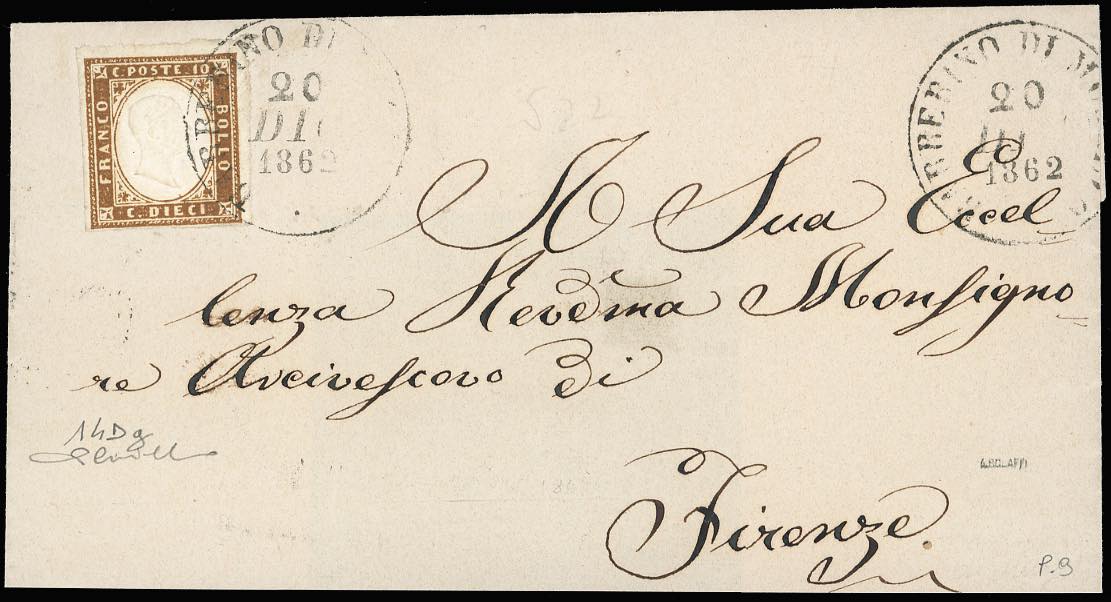 C. POSTE 10
FRANCO
BOLLO
C. DIECI
INO DI
20
DI
1862
RBERINO DI M
20
1862
A Sua Eccel
lenza Revd̄ma Monsigno
re Arcivescovo di
Firenze
14Dg
A.BOLAFFI
P.9